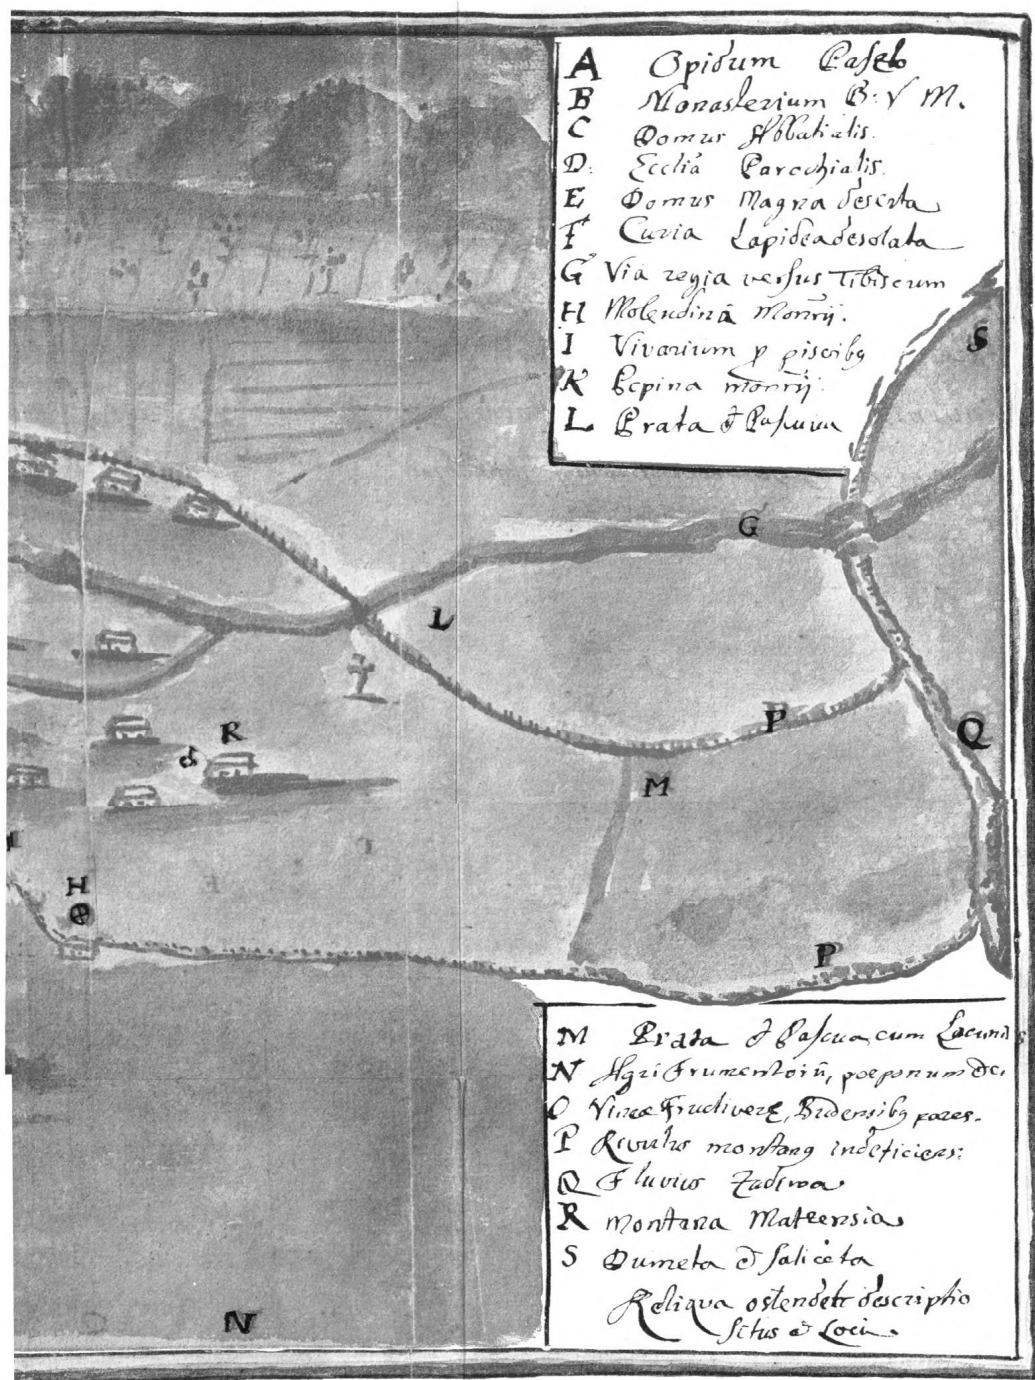 A Opidum Paszto
B Monasterium B: V M.
C Domus Abbatialis.
D: Ecclia Parochialis.
E Domus Magna deserta
F Curia Lapidea desolata
G Via regia versus Tibiscum
H Molendina Monrij.
I Vivarium p piscibq
K monrij.
L Prata et Pascua
S
G
L
P
R
Q
M
H
P
N
M Prata et Pascua, cum Lacunis
N Agri Frumentorū, poeponum etc.
O Vineæ Fructiveræ, Budensibq pares.
P Rivulus montanq indeficiens:
Q Fluvius Zadua
R montana
S Dumeta et Saliceta
Reliqua ostendetr descriptio
Situs et Loci.